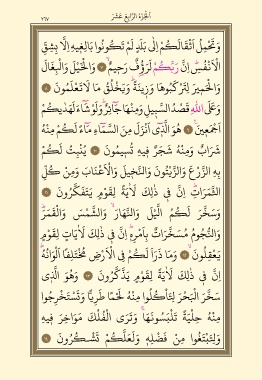 الجزء الرابع عشر ٢٦٧
وَتَحْمِلُ أَثْقَالَكُمْ إِلَىٰ بَلَدٍ لَمْ تَكُونُوا بَالِغِيهِ إِلَّا بِشِقِّ
الْأَنْفُسِ إِنَّ رَبَّكُمْ لَرَؤُفٌ رَحِيمٌ ٧ وَالْخَيْلَ وَالْبِغَالَ
وَالْحَمِيرَ لِتَرْكَبُوهَا وَزِينَةً وَيَخْلُقُ مَا لَا تَعْلَمُونَ ٨
وَعَلَى اللَّهِ قَصْدُ السَّبِيلِ وَمِنْهَا جَائِرٌ وَلَوْ شَاءَ لَهَدٰيكُمْ
أَجْمَعِينَ ٩ هُوَ الَّذِي أَنْزَلَ مِنَ السَّمَاءِ مَاءً لَكُمْ مِنْهُ
شَرَابٌ وَمِنْهُ شَجَرٌ فِيهِ تُسِيمُونَ ١٠ يُنْبِتُ لَكُمْ
بِهِ الزَّرْعَ وَالزَّيْتُونَ وَالنَّخِيلَ وَالْأَعْنَابَ وَمِنْ كُلِّ
الثَّمَرَاتِ إِنَّ فِي ذٰلِكَ لَآيَةً لِقَوْمٍ يَتَفَكَّرُونَ ١١
وَسَخَّرَ لَكُمُ الَّيْلَ وَالنَّهَارَ وَالشَّمْسَ وَالْقَمَرَ
وَالنُّجُومُ مُسَخَّرَاتٌ بِأَمْرِهِ إِنَّ فِي ذٰلِكَ لَآيَاتٍ لِقَوْمٍ
يَعْقِلُونَ ١٢ وَمَا ذَرَأَ لَكُمْ فِي الْأَرْضِ مُخْتَلِفًا أَلْوَانُهُ
إِنَّ فِي ذٰلِكَ لَآيَةً لِقَوْمٍ يَذَّكَّرُونَ ١٣ وَهُوَ الَّذِي
سَخَّرَ الْبَحْرَ لِتَأْكُلُوا مِنْهُ لَحْمًا طَرِيًّا وَتَسْتَخْرِجُوا
مِنْهُ حِلْيَةً تَلْبَسُونَهَا وَتَرَى الْفُلْكَ مَوَاخِرَ فِيهِ
وَلِتَبْتَغُوا مِنْ فَضْلِهِ وَلَعَلَّكُمْ تَشْكُرُونَ ١٤